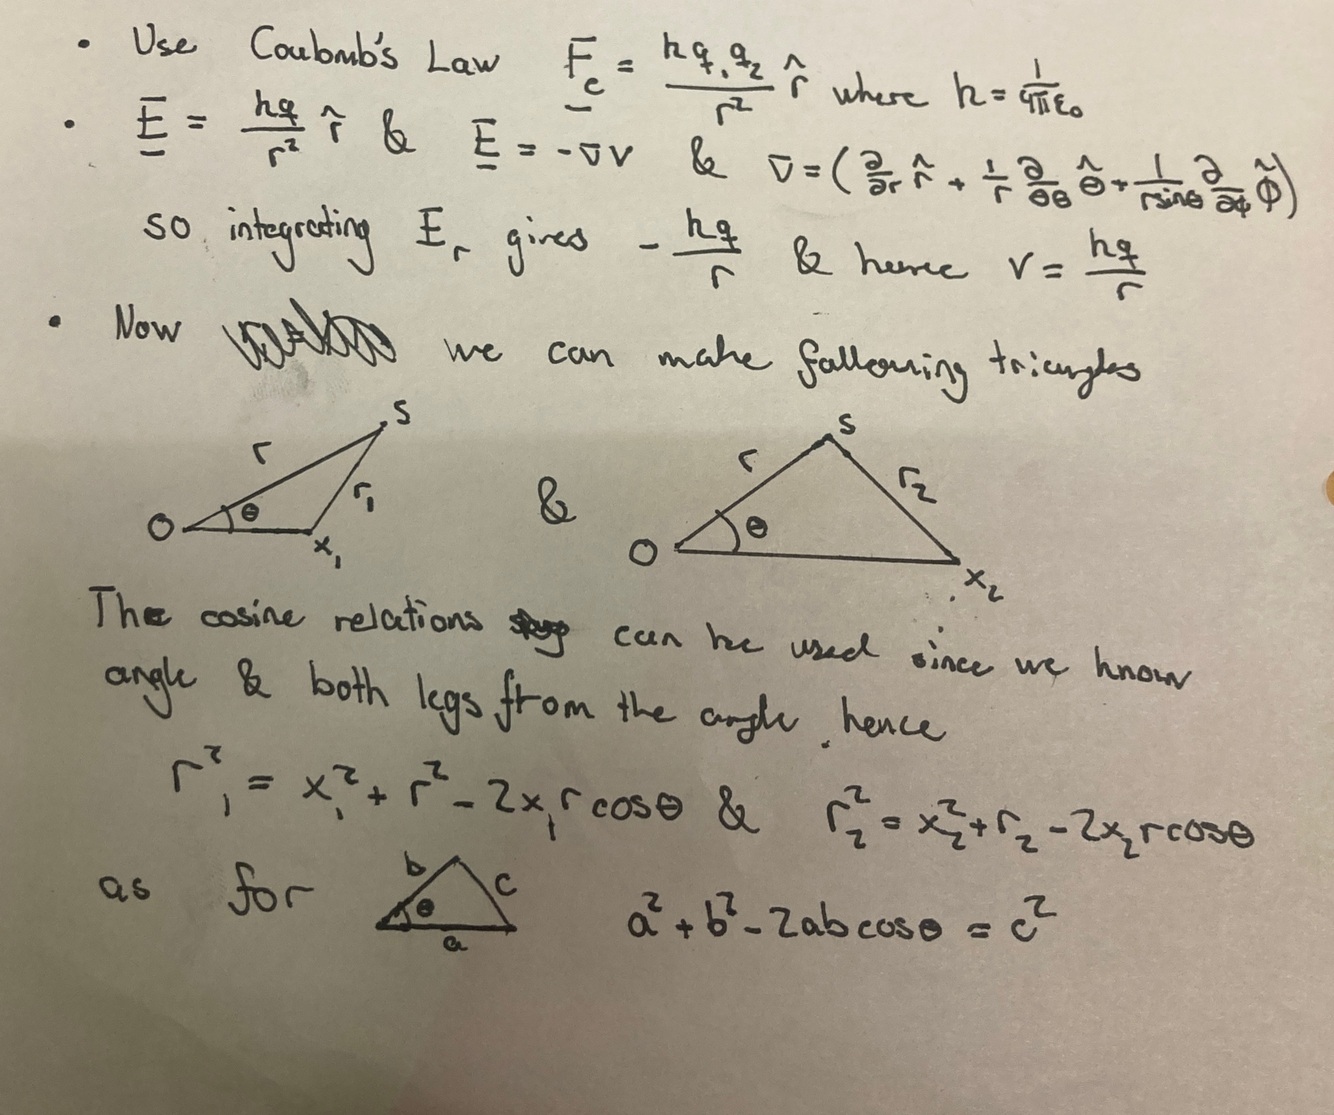 • Use Coulomb's Law F̲̅_c = hq₁q₂/r² r̂ where h = 1/4πε₀
• E̲̅ = hq/r² r̂ & E̲̅ = -∇V & ∇ = (∂/∂r r̂ + 1/r ∂/∂θ θ̂ + 1/rsinθ ∂/∂ϕ ϕ̃)
so integrating E_r gives - hq/r & hence V = hq/r
• Now we can make following triangles
S S
r r₁ & r r₂
O θ x₁ O θ x₂
The cosine relations can be used since we know
angle & both legs from the angle, hence
r₁² = x₁² + r² - 2x₁r cosθ & r₂² = x₂² + r₂ - 2x₂r cosθ
as for b θ c a a² + b² - 2ab cosθ = c²